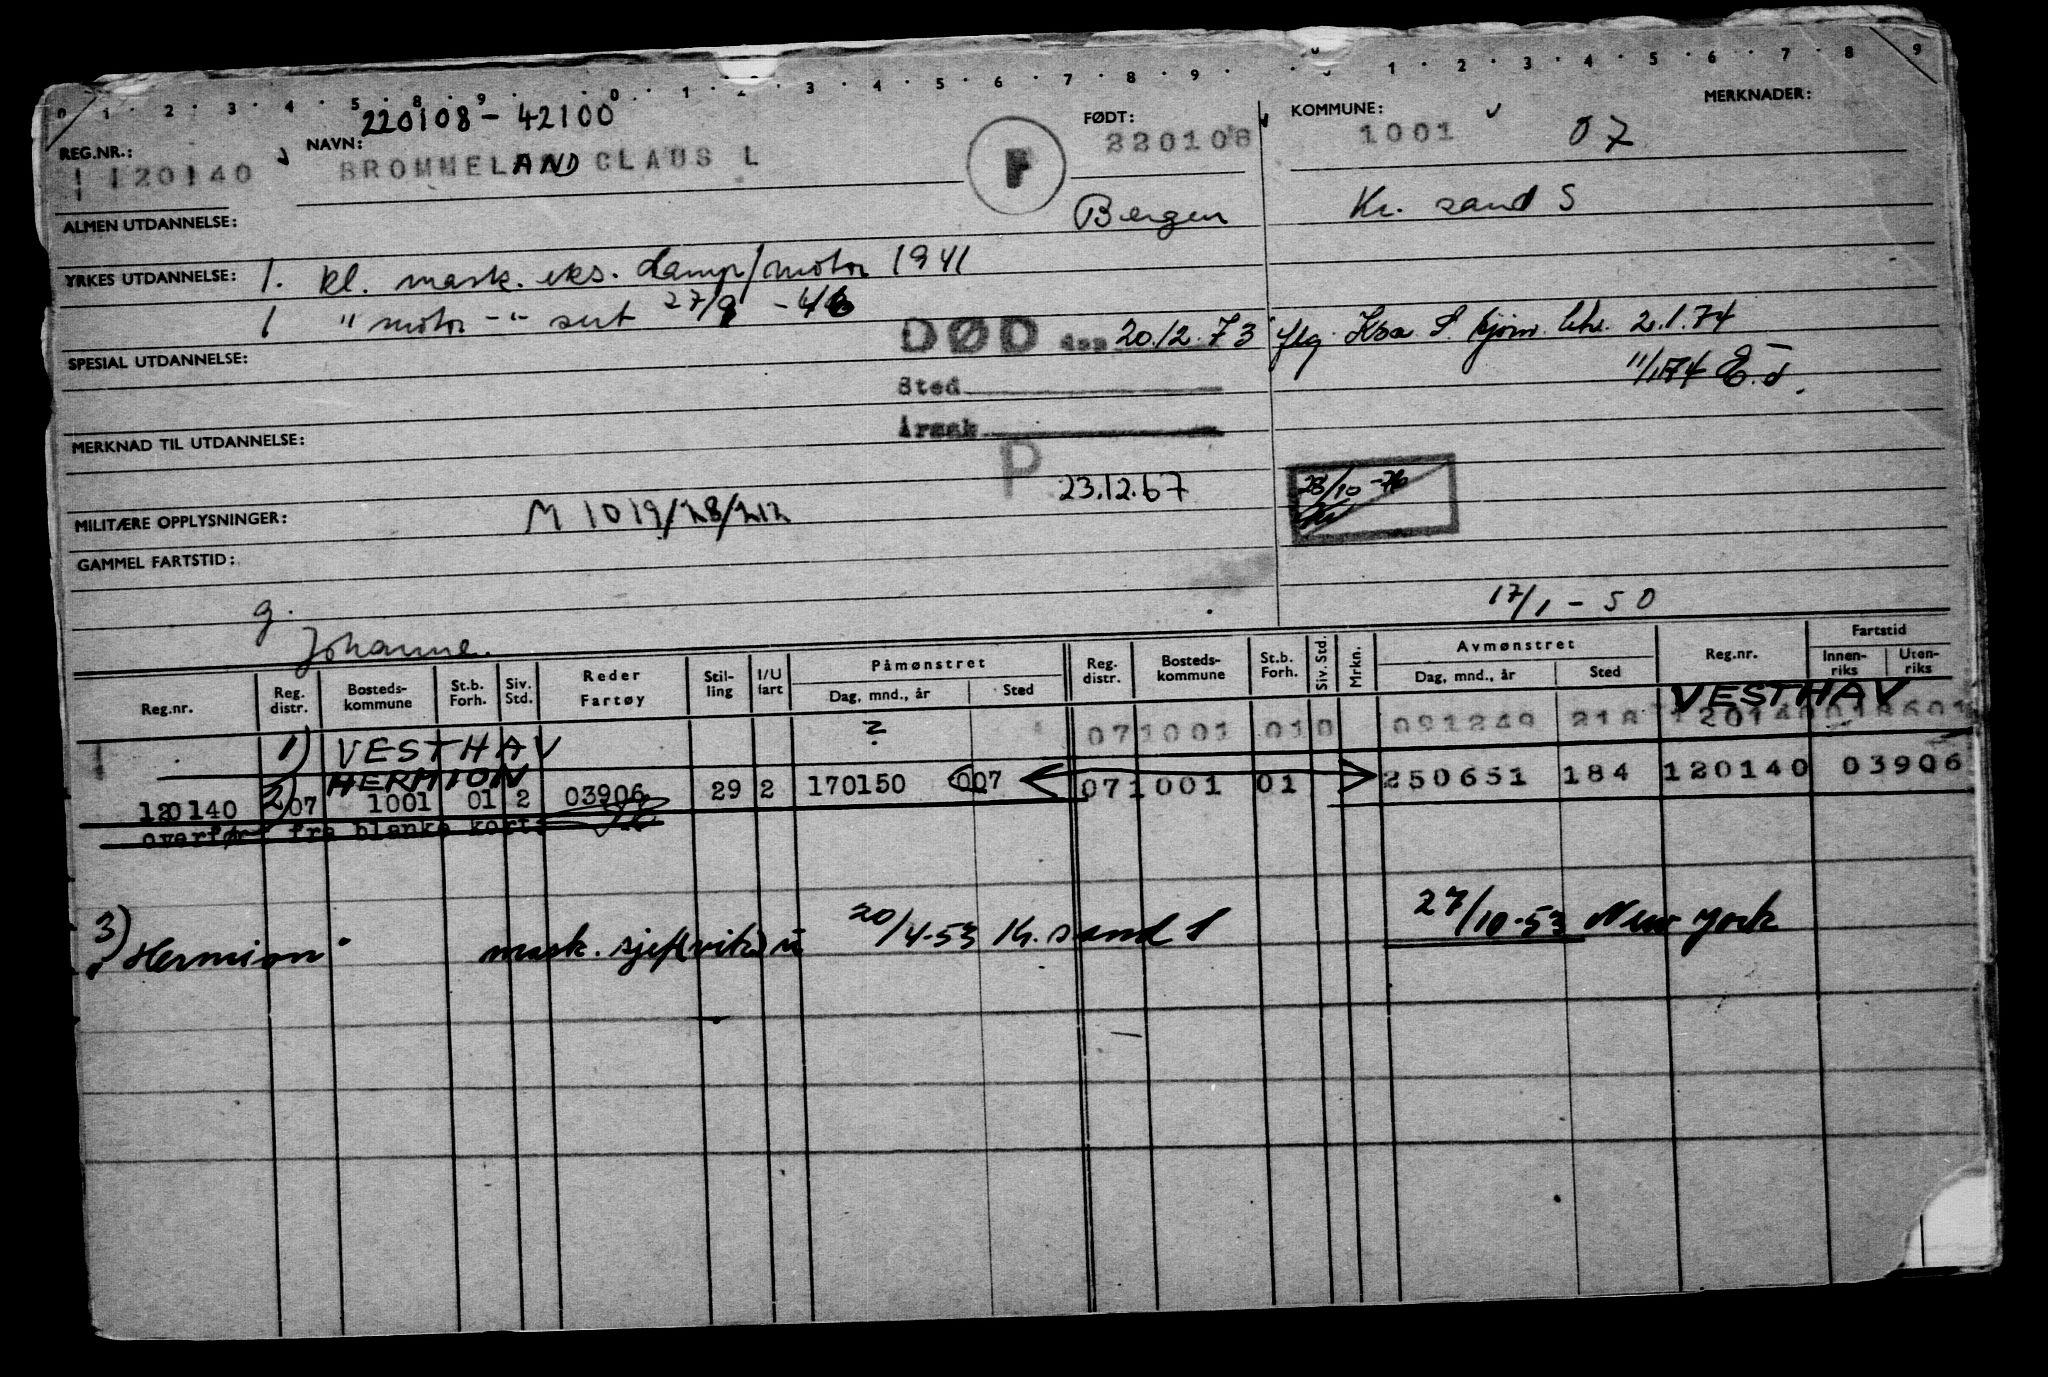 0 1 2 3 4 5 8 9 0 1 2 3 4 5 6 7 8 9 0 1 2 3 4 5 6 7 8 9
220108 - 42100
REG.NR.: 120140
NAVN: BROMMELAND CLAUS L
F
FØDT: 220108
Bergen
KOMMUNE: 1001 07
MERKNADER:
Kr. sand S
ALMEN UTDANNELSE:
YRKES UTDANNELSE: 1. kl. mask. eks. damp/motor 1941
1 " motor -"- sert 27/9 - 46
SPESIAL UTDANNELSE:
DØD den 20.12.73 flg. Kra S. sjøm. 2.1.74
11/1 74
Sted
Årsak
MERKNAD TIL UTDANNELSE:
P 23.12.67
28/10 -76
MILITÆRE OPPLYSNINGER: M 1019/28/212
GAMMEL FARTSTID:
17/1 - 50
g. Johanne.
Reg.nr. Reg. distr. Bosteds- kommune St.b. Forh. Siv. Std. Reder Fartøy Stil- ling I/U fart Påmønstret Dag, mnd., år Sted Reg. distr. Bosteds- kommune St.b. Forh. Siv. Std. Mrkn. Avmønstret Dag, mnd., år Sted Reg.nr. Fartstid Innen- riks Uten- riks
VESTHAV
1) VESTHAV ? 07 1001 01 091249 218 120140
2) HERMION
120140 07 1001 01 2 03906 29 2 170150 007 07 1001 01 250651 184 120140 03906
overført fra blanke kort
3) "Hermion" mask. sjef(vik) u 20/4-53 Kr. sand S 27/10-53 New York